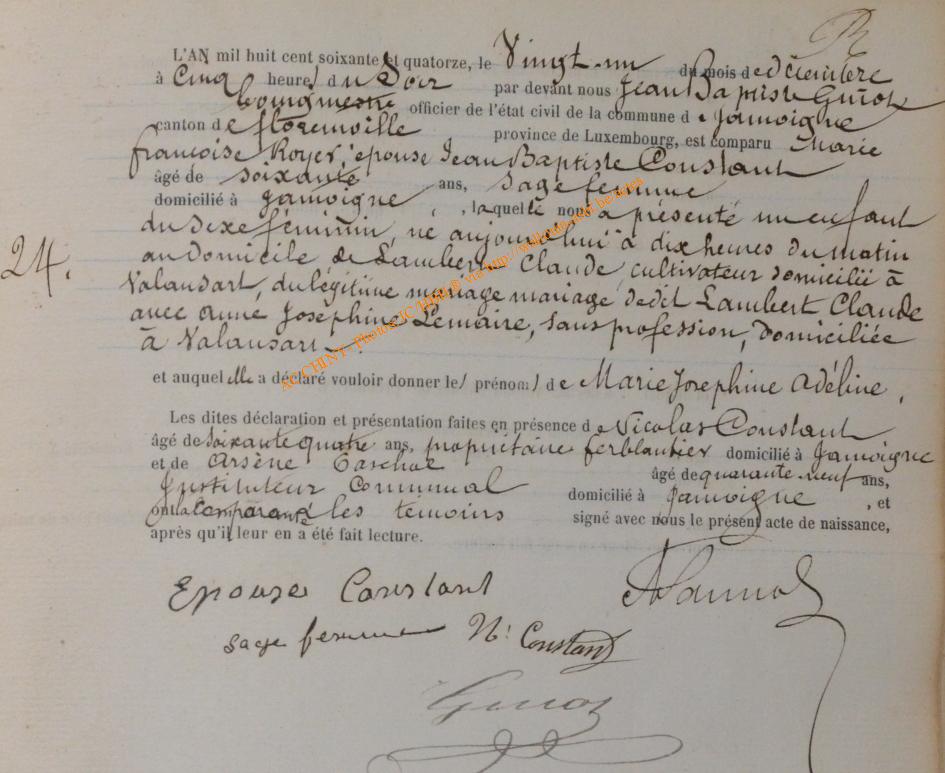 L'AN mil huit cent soixante et quatorze, le Vingt-un du mois de décembre
à Cinq heures du Soir par devant nous Jean Baptiste Guiot
bourgmestre officier de l'état civil de la commune de Jamoigne
canton de florenville province de Luxembourg, est comparu Marie
françoise Royer, épouse Jean Baptiste Constant
âgé de soixante ans, sage femme
domicilié à Jamoigne, laquelle nous a présenté un enfant
du sexe féminin, né aujourd'hui à dix heures du matin
au Domicile de Lambert Claude, cultivateur domicilié à
Valansart, du légitime mariage mariage dedit Lambert Claude
avec Anne Josephine Lemaire, sans profession, domiciliée
à Valansart
24.
et auquel elle a déclaré vouloir donner les prénoms de Marie Josephine Adéline.
Les dites déclaration et présentation faites en présence de Nicolas Constant
âgé de soixante quatre ans, propriétaire ferblantier domicilié à Jamoigne
et de Arsène âgé de quarante neuf ans,
Instituteur Communal domicilié à Jamoigne, et
ont la comparante les témoins signé avec nous le présent acte de naissance,
après qu'il leur en a été fait lecture.
Epouse Constant
sage femme N. Constant
Guiot
AC CHINY - Photos via http://wallonie.met